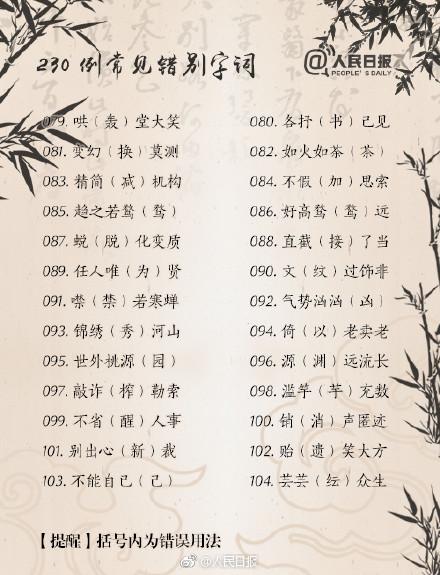 230 例常见错别字词
@人民日报
PEOPLE'S DAILY
079. 哄（轰）堂大笑 080. 各抒（书）己见
081. 变幻（换）莫测 082. 如火如荼（茶）
083. 精简（减）机构 084. 不假（加）思索
085. 趋之若鹜（骛） 086. 好高骛（鹜）远
087. 蜕（脱）化变质 088. 直截（接）了当
089. 任人唯（为）贤 090. 文（纹）过饰非
091. 噤（禁）若寒蝉 092. 气势汹汹（凶）
093. 锦绣（秀）河山 094. 倚（以）老卖老
095. 世外桃源（园） 096. 源（渊）远流长
097. 敲诈（榨）勒索 098. 滥竽（芋）充数
099. 不省（醒）人事 100. 销（消）声匿迹
101. 别出心（新）裁 102. 贻（遗）笑大方
103. 不能自已（己） 104. 芸芸（纭）众生
【提醒】括号内为错误用法
@人民日报